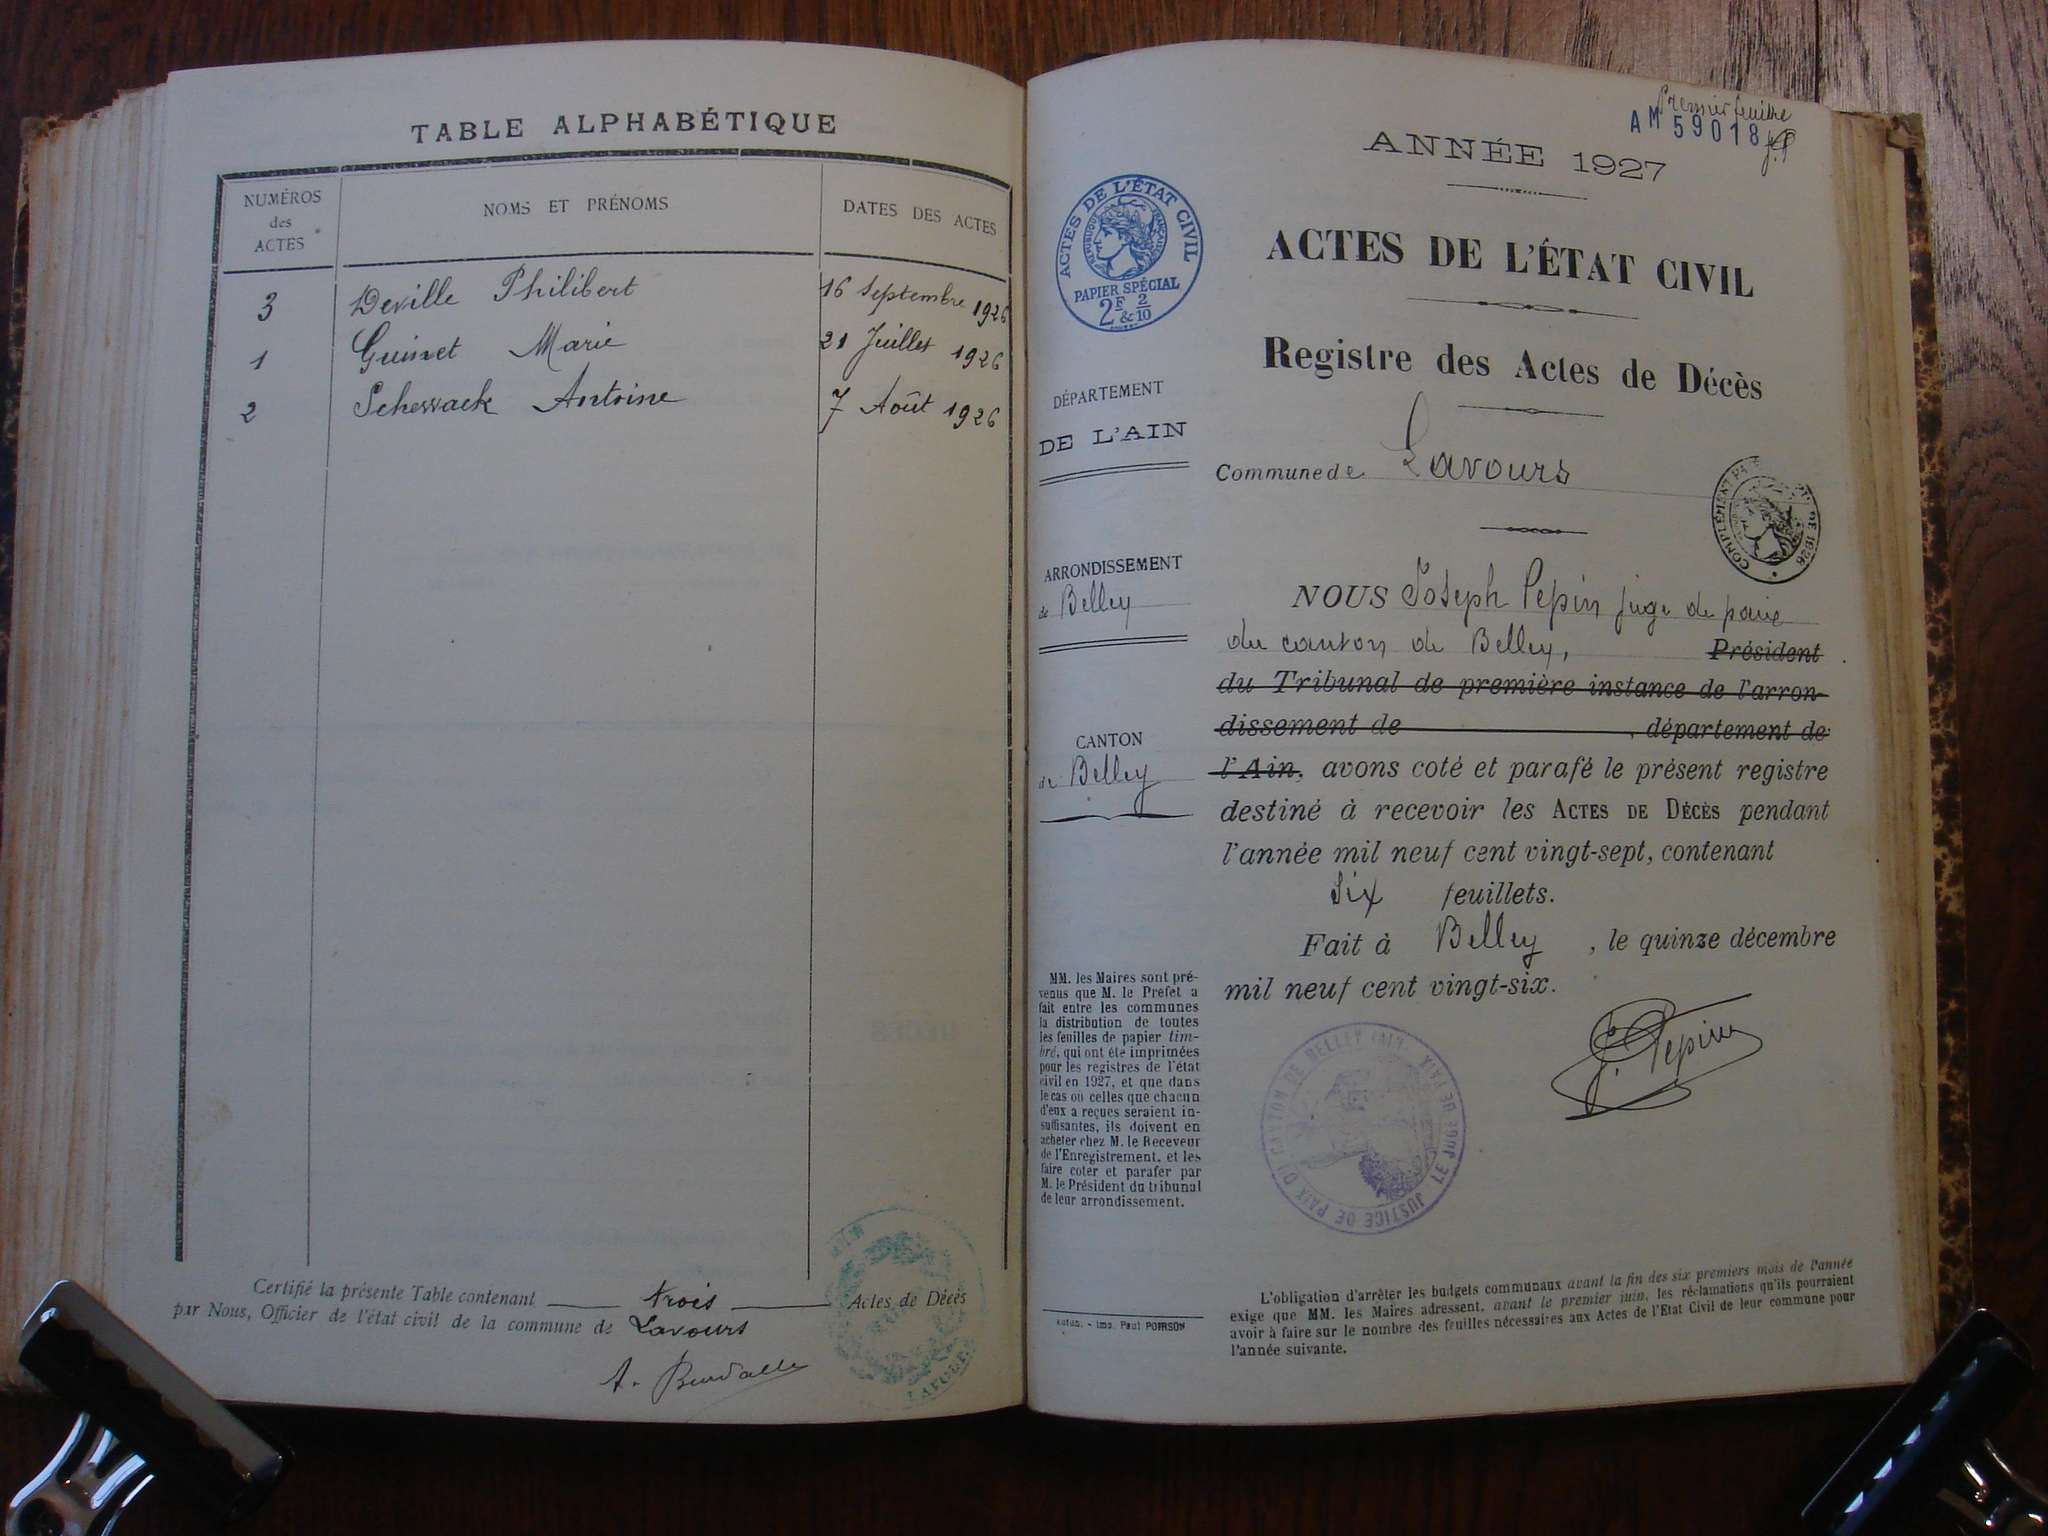 TABLE ALPHABÉTIQUE
NUMÉROS des ACTES
NOMS ET PRÉNOMS
DATES DES ACTES
3 Deville Philibert 16 Septembre 1926
1 Guinet Marie 21 Juillet 1926
2 Antoine 7 Août 1926
Certifié la présente Table contenant trois Actes de Décès
par Nous, Officier de l'état civil de la commune de Lavours
Premier feuillet
AM 59018
ANNÉE 1927
ACTES DE L'ÉTAT CIVIL
RÉPUBLIQUE FRANÇAISE
PAPIER SPÉCIAL
2F & 2/10
ACTES DE L'ÉTAT CIVIL
Registre des Actes de Décès
DÉPARTEMENT
DE L'AIN
Commune de Lavours
COMPLÉMENT DE 1926
ARRONDISSEMENT
de Belley
CANTON
de Belley
NOUS Joseph Pepin juge de paix
du canton de Belley, Président
du Tribunal de première instance de l'arron-
dissement de , département de
l'Ain, avons coté et parafé le présent registre
destiné à recevoir les ACTES DE DÉCÈS pendant
l'année mil neuf cent vingt-sept, contenant
six feuillets.
Fait à Belley , le quinze décembre
mil neuf cent vingt-six.
J. Pepin
JUSTICE DE PAIX DU CANTON DE BELLEY (AIN)
LE JUGE DE PAIX
MM. les Maires sont pré-
venus que M. le Préfet a
fait entre les communes
la distribution de toutes
les feuilles de papier tim-
bré, qui ont été imprimées
pour les registres de l'état
civil en 1927, et que dans
le cas où celles que chacun
d'eux a reçues seraient in-
suffisantes, ils doivent en
acheter chez M. le Receveur
de l'Enregistrement, et les
faire coter et parafer par
M. le Président du tribunal
de leur arrondissement.
Autun. - Imp. Paul POIRSON
L'obligation d'arrêter les budgets communaux avant la fin des six premiers mois de l'année
exige que MM. les Maires adressent, avant le premier juin, les réclamations qu'ils pourraient
avoir à faire sur le nombre des feuilles nécessaires aux Actes de l'Etat Civil de leur commune pour
l'année suivante.